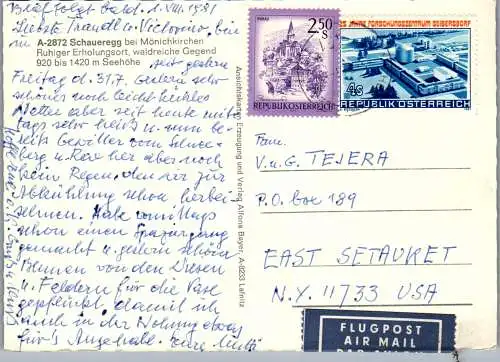 Brief folgt bald. 1. VIII. 1981
Liebste Trandl u. Victorino, bin
A-2872 Schaueregg bei Mönichkirchen
Ruhiger Erholungsort, waldreiche Gegend
920 bis 1420 m Seehöhe
seit gestern
Freitag d. 31.7. Gestern sehr
schönes noch leicht kühles
Wetter aber seit heute mit-
tags sehr heiß u. nun be-
reits Gewitter vom Schnee-
berg u. Rax her aber noch
kein Regen, den wir zur
Abkühlung schon herbei-
sehnen. Habe vormittags
schon einen Spaziergang
gemacht u. gestern schon
Blumen von den Wiesen
u. Feldern für die Vase
gepflückt, damit ich
auch in der Wohnung etwas
für's Auge habe. Eure Mutti
Ansichtskarten Erzeugung und Verlag Alfons Bayer, A-8233 Lafnitz
MURAU
2.50
S
REPUBLIK ÖSTERREICH
25 JAHRE FORSCHUNGSZENTRUM SEIBERSDORF
4s
REPUBLIK ÖSTERREICH
Fam.
V. u. G. TEJERA
P.O. box 189
EAST SETAUKET
N.Y. 11733 USA
FLUGPOST
AIR MAIL